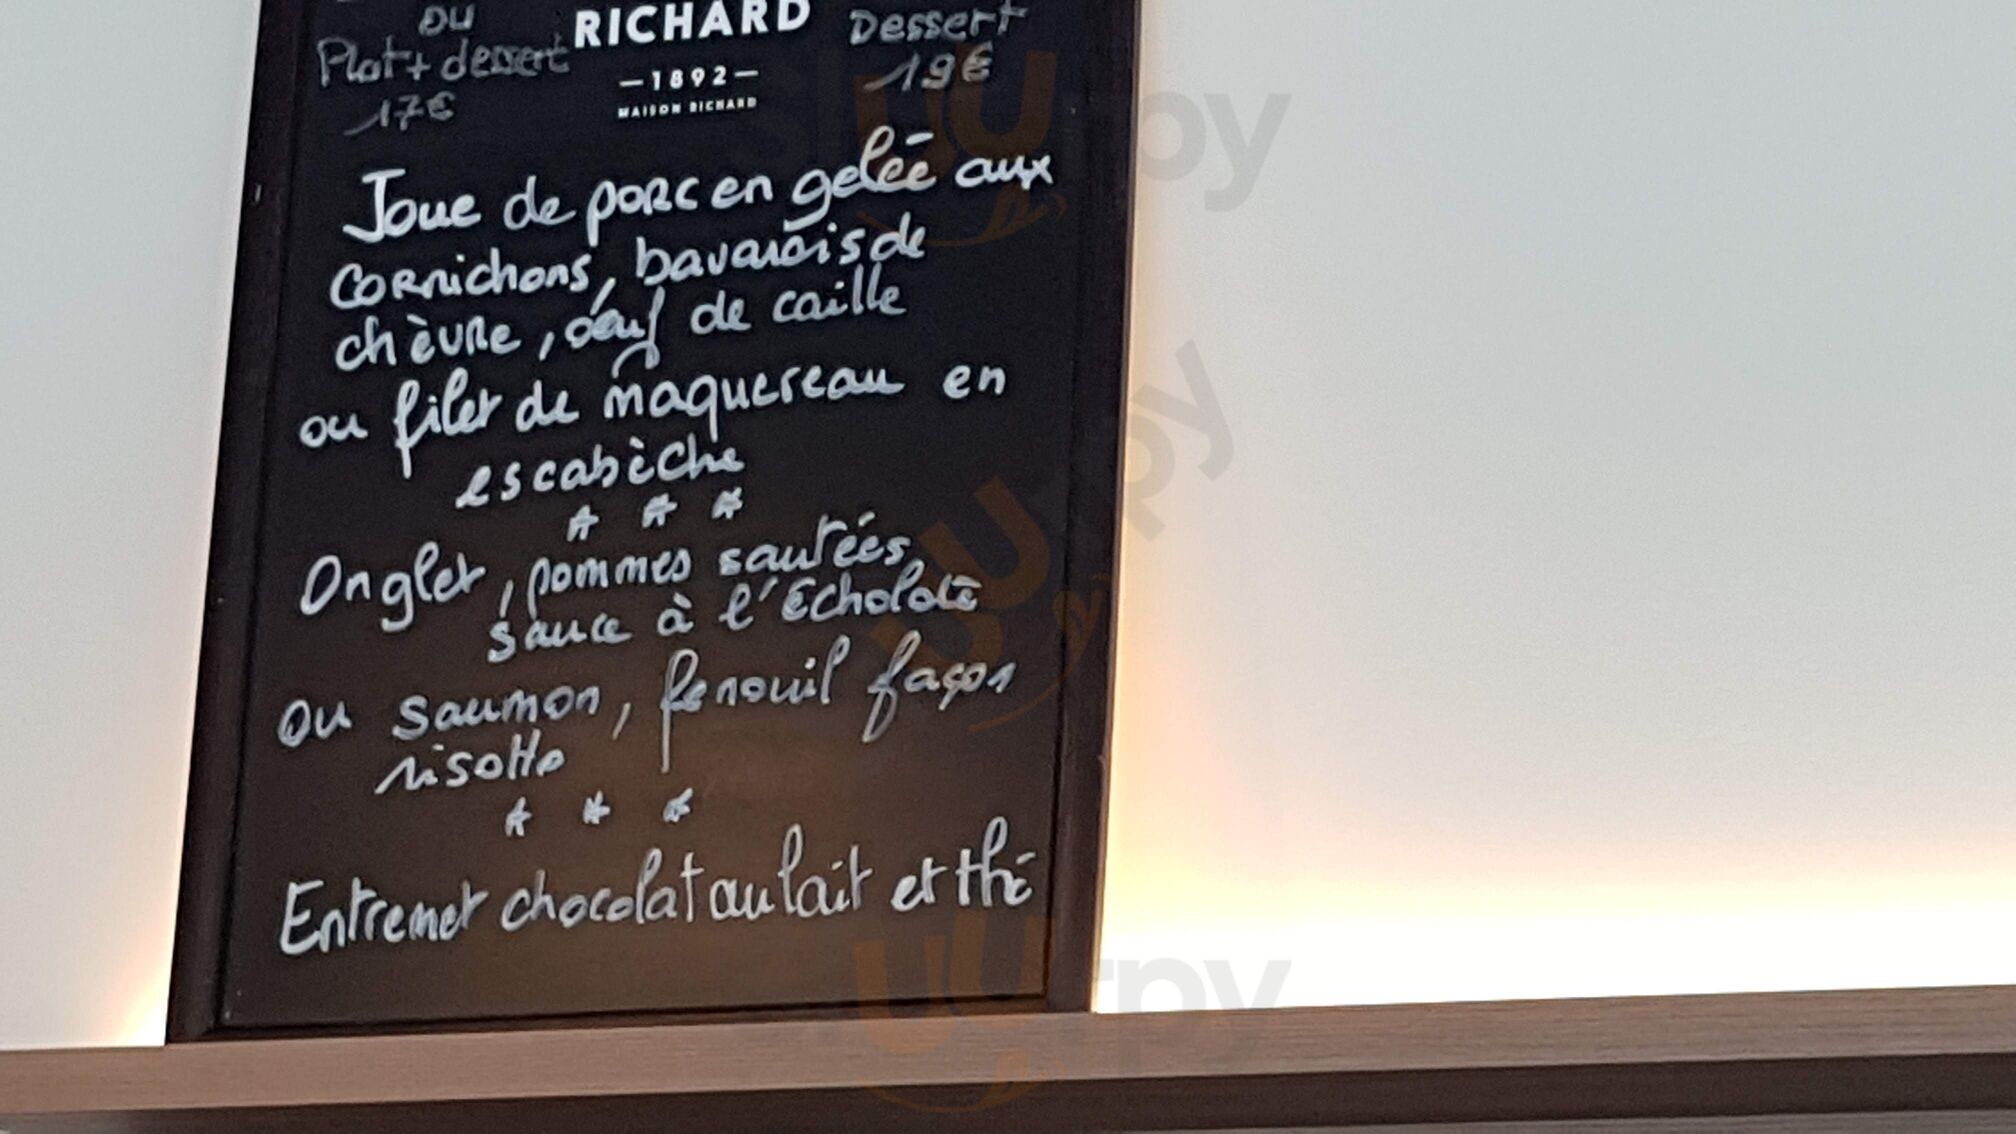 ou
Plat + dessert
17€
RICHARD
—1892—
MAISON RICHARD
Dessert
19€
Joue de porc en gelée aux
cornichons, bavarois de
chèvre, œuf de caille
ou filet de maquereau en
escabèche
* * *
Onglet, pommes sautées,
sauce à l'Echalote
ou saumon, fenouil façon
risotto
* * *
Entremet chocolat au lait et thé